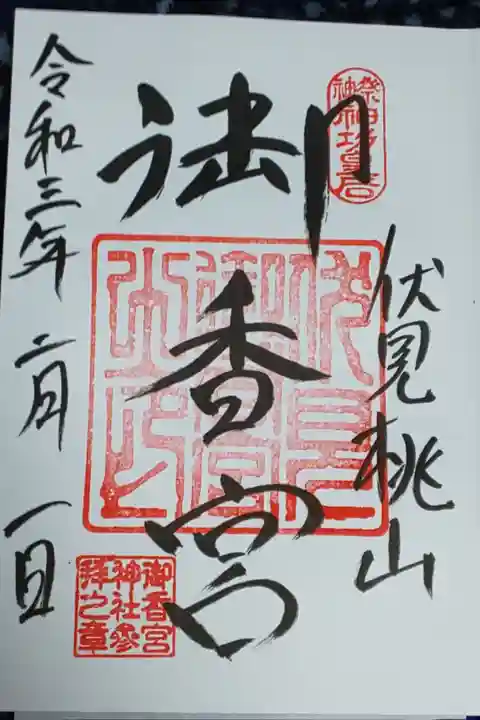 伏見桃山
祭神神功皇后
御香宮
御香宮
神社参
拝之章
令和三年二月一日